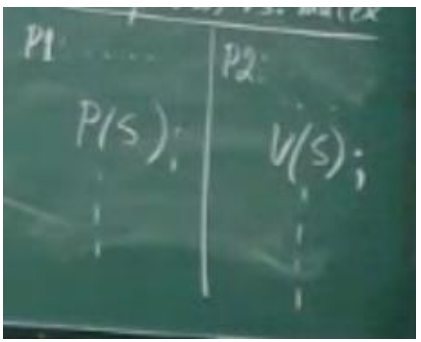 mutex
P1: .....
P(S);
P2:
...
V(S);